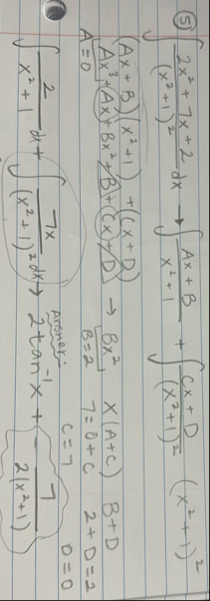 ⑤ ∫ (2x² + 7x + 2)/(x² + 1)² dx → ∫ (Ax + B)/(x² + 1) + ∫ (Cx + D)/(x² + 1)²   (x² + 1)²
(Ax + B)(x² + 1) + (Cx + D)
Ax³ + Ax + Bx² + B + Cx + D → Bx²   x(A+C)   B + D
A = 0   B = 2   7 = 0 + C   2 + D = 2
C = 7   D = 0
Answer:
∫ 2/(x² + 1) dx + ∫ 7x/(x² + 1)² dx → 2 tan⁻¹ x + - 7/(2(x² + 1))